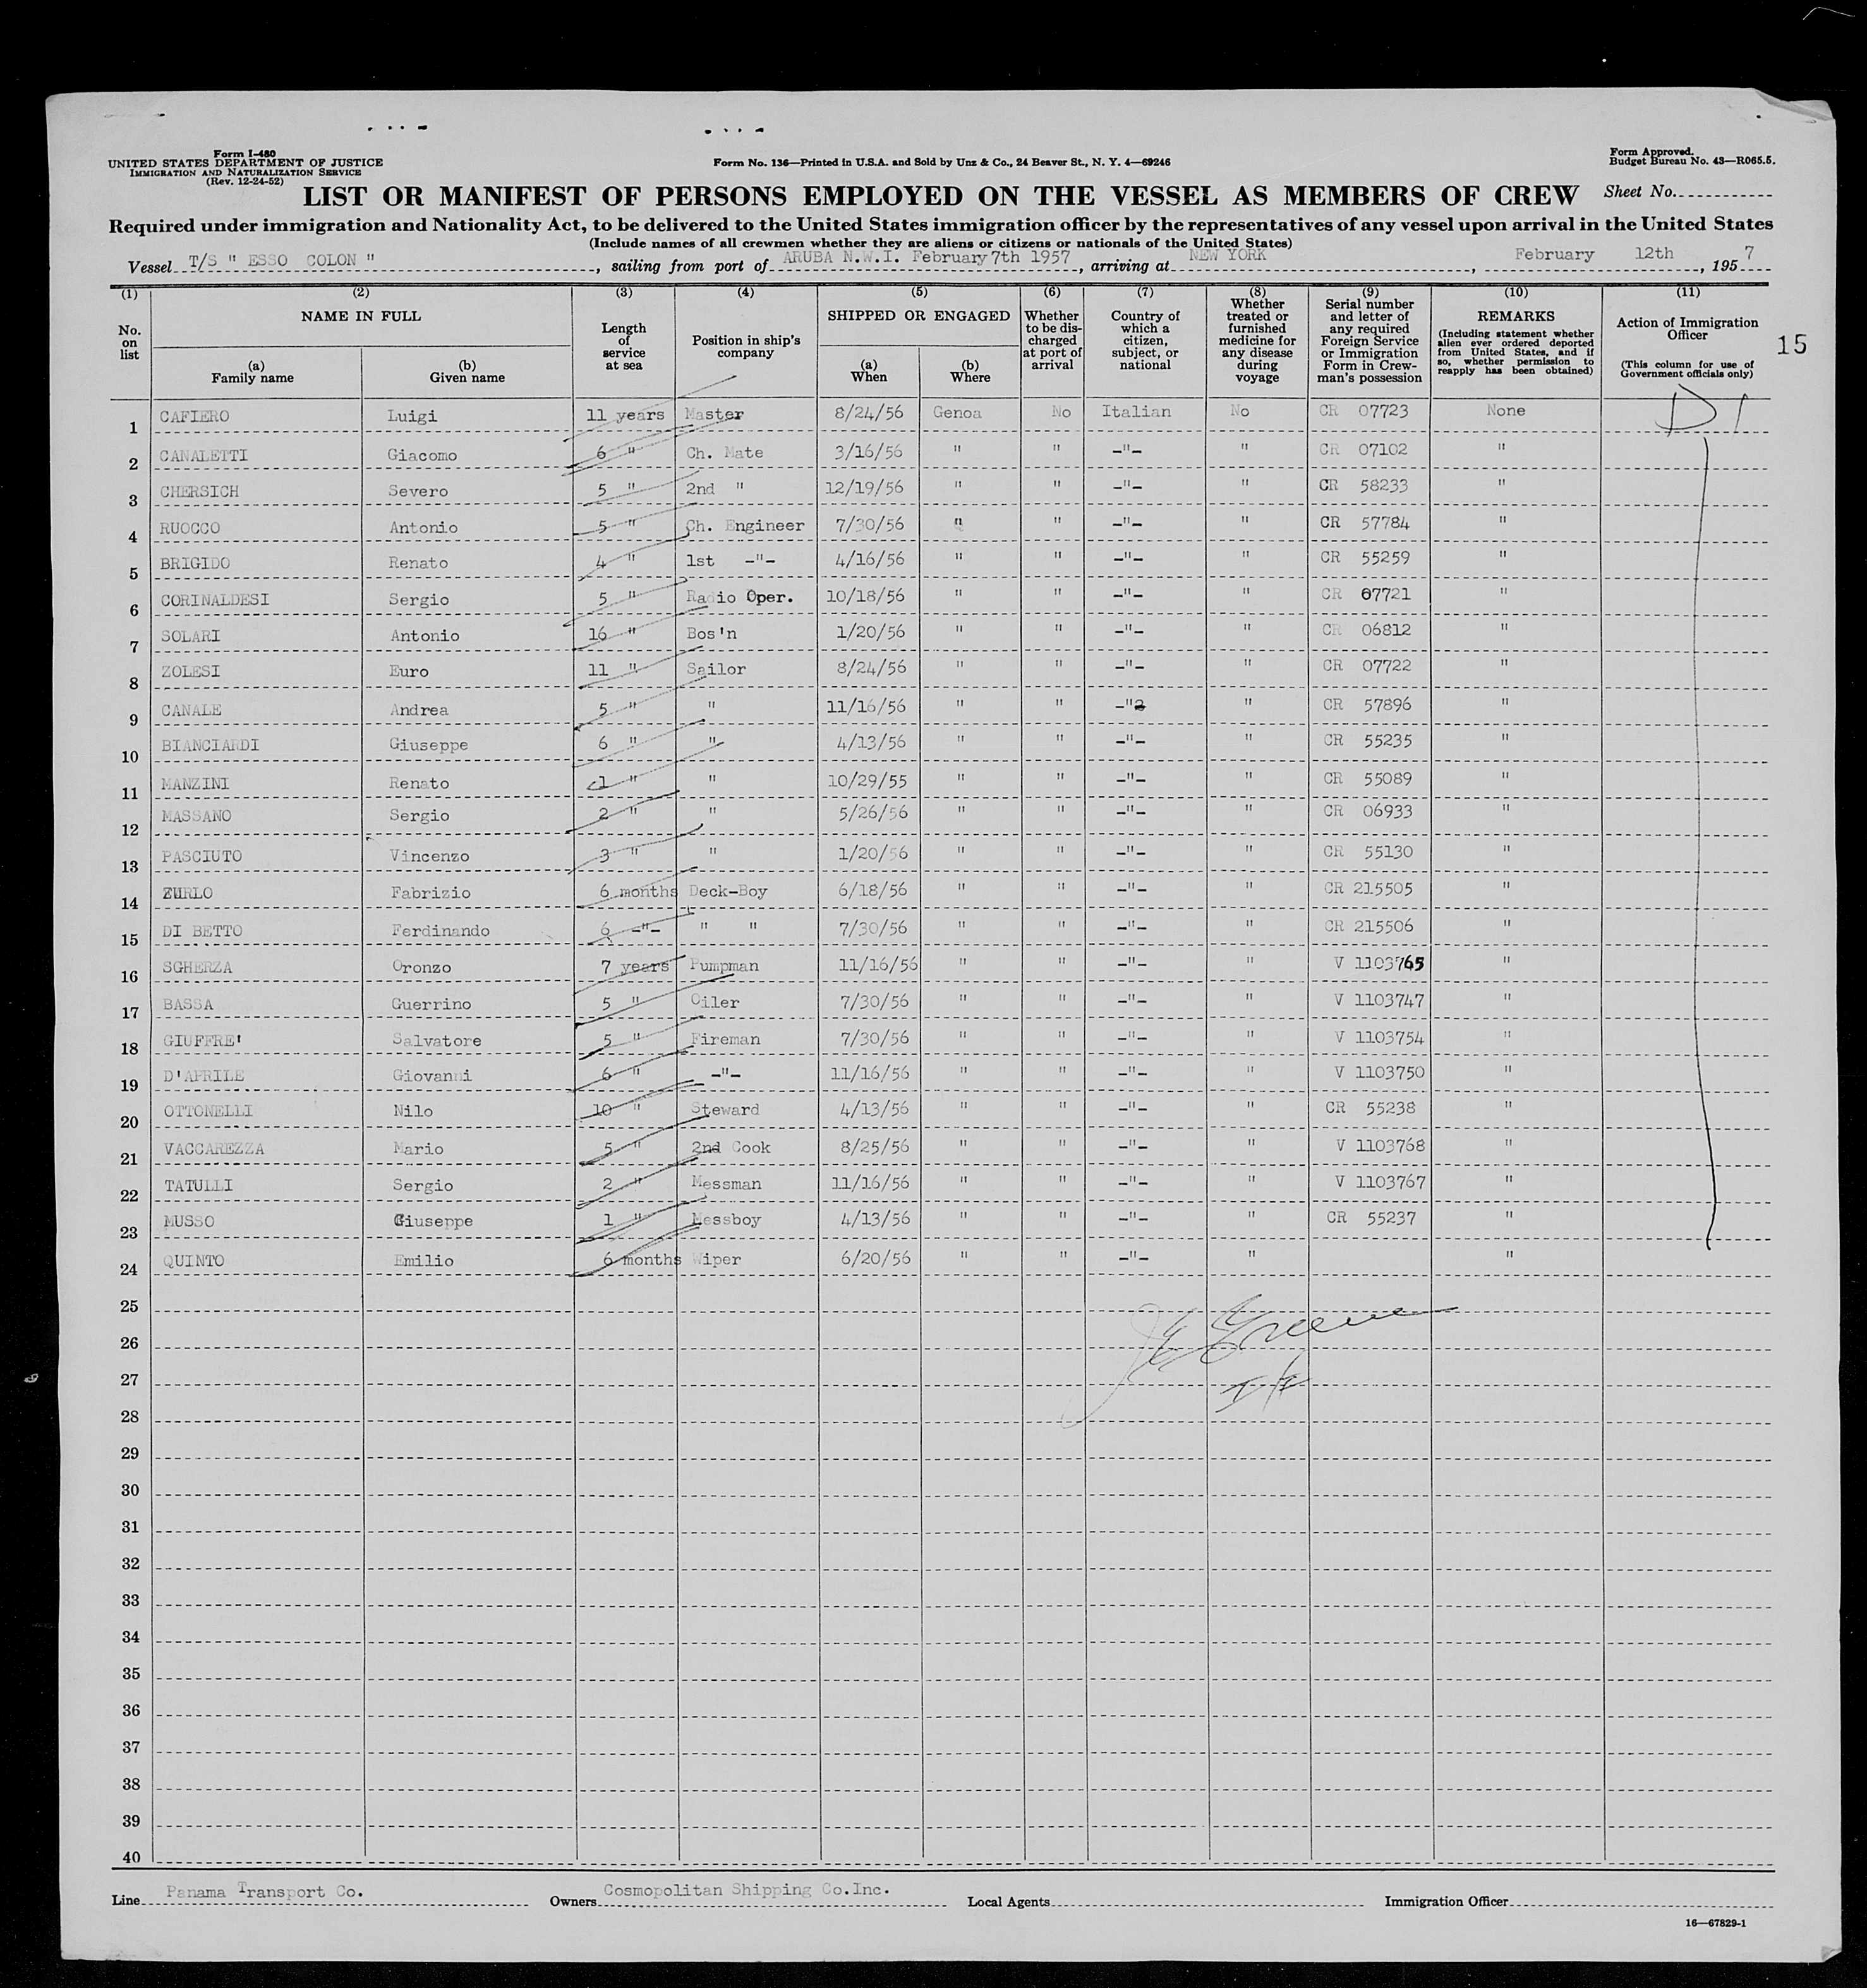 Form I-480
UNITED STATES DEPARTMENT OF JUSTICE
IMMIGRATION AND NATURALIZATION SERVICE
(Rev. 12-24-52)
Form No. 136—Printed in U.S.A. and Sold by Unz & Co., 24 Beaver St., N. Y. 4—69246
Form Approved.
Budget Bureau No. 43—R065.5.
LIST OR MANIFEST OF PERSONS EMPLOYED ON THE VESSEL AS MEMBERS OF CREW Sheet No.
Required under immigration and Nationality Act, to be delivered to the United States immigration officer by the representatives of any vessel upon arrival in the United States
(Include names of all crewmen whether they are aliens or citizens or nationals of the United States)
Vessel T/S " ESSO COLON ", sailing from port of ARUBA N.W.I. February 7th 1957, arriving at NEW YORK, February 12th, 1957
(1) (2) (3) (4) (5) (6) (7) (8) (9) (10) (11)
No. on list
NAME IN FULL
(a) Family name
(b) Given name
Length of service at sea
Position in ship's company
SHIPPED OR ENGAGED
(a) When
(b) Where
Whether to be discharged at port of arrival
Country of which a citizen, subject, or national
Whether treated or furnished medicine for any disease during voyage
Serial number and letter of any required Foreign Service or Immigration Form in Crewman's possession
REMARKS
(Including statement whether alien ever ordered deported from United States, and if so, whether permission to reapply has been obtained)
Action of Immigration Officer
(This column for use of Government officials only)
15
1 CAFIERO Luigi 11 years Master 8/24/56 Genoa No Italian No CR 07723 None D1
2 CANALETTI Giacomo 6 " Ch. Mate 3/16/56 " " -"- " CR 07102 "
3 CHERSICH Severo 5 " 2nd " 12/19/56 " " -"- " CR 58233 "
4 RUOCCO Antonio 5 " Ch. Engineer 7/30/56 " " -"- " CR 57784 "
5 BRIGIDO Renato 4 " 1st -"- 4/16/56 " " -"- " CR 55259 "
6 CORINALDESI Sergio 5 " Radio Oper. 10/18/56 " " -"- " CR 07721 "
7 SOLARI Antonio 16 " Bos'n 1/20/56 " " -"- " CR 06812 "
8 ZOLESI Euro 11 " Sailor 8/24/56 " " -"- " CR 07722 "
9 CANALE Andrea 5 " " 11/16/56 " " -"- " CR 57896 "
10 BIANCIARDI Giuseppe 6 " " 4/13/56 " " -"- " CR 55235 "
11 MANZINI Renato 1 " " 10/29/55 " " -"- " CR 55089 "
12 MASSANO Sergio 2 " " 5/26/56 " " -"- " CR 06933 "
13 PASCIUTO Vincenzo 3 " " 1/20/56 " " -"- " CR 55130 "
14 ZURLO Fabrizio 6 months Deck-Boy 6/18/56 " " -"- " CR 215505 "
15 DI BETTO Ferdinando 6 -"- " " 7/30/56 " " -"- " CR 215506 "
16 SGHERZA Oronzo 7 years Pumpman 11/16/56 " " -"- " V 1103765 "
17 BASSA Guerrino 5 " Oiler 7/30/56 " " -"- " V 1103747 "
18 GIUFFRE' Salvatore 5 " Fireman 7/30/56 " " -"- " V 1103754 "
19 D'APRILE Giovanni 6 " -"- 11/16/56 " " -"- " V 1103750 "
20 OTTONELLI Nilo 10 " Steward 4/13/56 " " -"- " CR 55238 "
21 VACCAREZZA Mario 5 " 2nd Cook 8/25/56 " " -"- " V 1103768 "
22 TATULLI Sergio 2 " Messman 11/16/56 " " -"- " V 1103767 "
23 MUSSO Giuseppe 1 " Messboy 4/13/56 " " -"- " CR 55237 "
24 QUINTO Emilio 6 months Wiper 6/20/56 " " -"- " "
25
26
27
28
29
30
31
32
33
34
35
36
37
38
39
40
Line Panama Transport Co. Owners Cosmopolitan Shipping Co.Inc. Local Agents Immigration Officer
16—67829-1